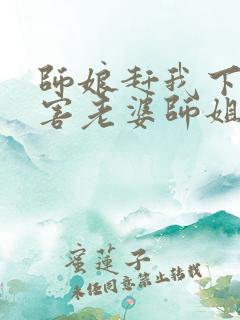 師娘趕我下
害老婆師姐
蜜蓮子
未經同意禁止轉載